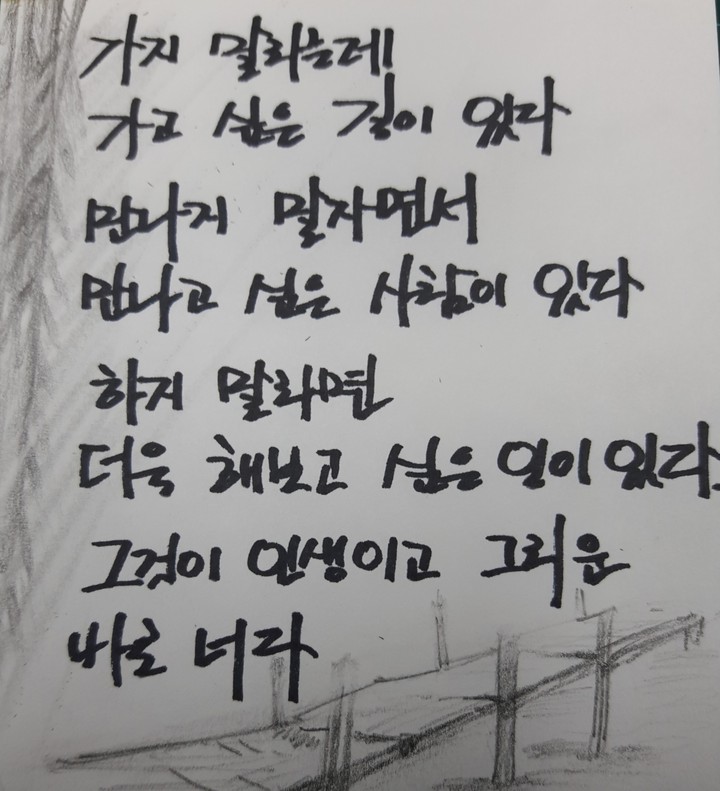 가지 말라는데
가고 싶은 길이 있다
만나지 말자면서
만나고 싶은 사람이 있다
하지 말라면
더욱 해보고 싶은 일이 있다.
그것이 인생이고 그리운
바로 너다